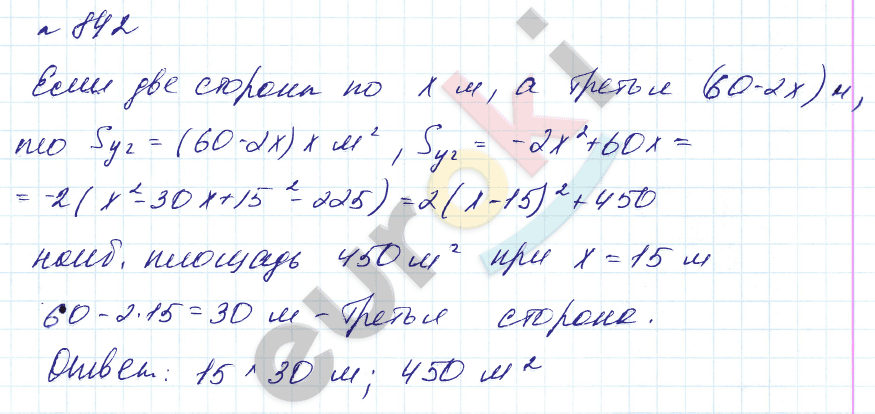 № 842
Если две стороны по x м, а третья (60-2x) м,
то Sуч = (60-2x) x м², Sуч = -2x²+60x =
= -2(x²-30x+15²-225) = 2(x-15)²+450
наиб. площадь 450 м² при x = 15 м
60-2·15=30 м - третья сторона.
Ответ: 15 и 30 м; 450 м²
euroki